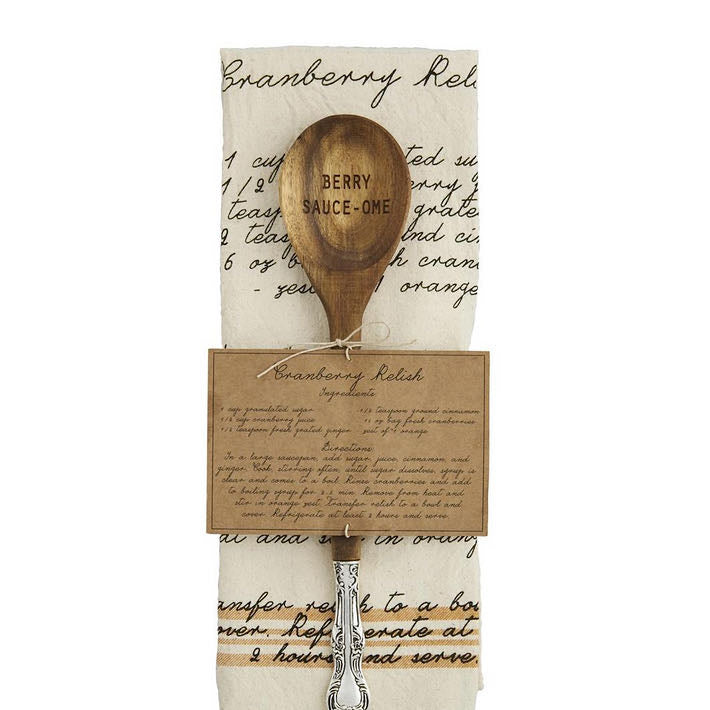 Cranberry Reli
1 cup ted su
1/2 erry
teasp grate
2 teas nd cin
6 oz b h cran
- zest 1 orange
BERRY
SAUCE-OME
Cranberry Relish
Ingredients
1 cup granulated sugar
1/2 cup cranberry juice
1/2 teaspoon fresh grated ginger
1/2 teaspoon ground cinnamon
oz bag fresh cranberries
zest of 1 orange
Directions
In a large saucepan, add sugar, juice, cinnamon, and
ginger. Cook, stirring often, until sugar dissolves, syrup is
clear and comes to a boil. Rinse cranberries and add
to boiling syrup for min. Remove from heat and
stir in orange zest. Transfer relish to a bowl and
cover. Refrigerate at least 2 hours and serve.
at and s in oran
ansfer rel h to a bo
over. Ref erate at
2 hours nd serve.